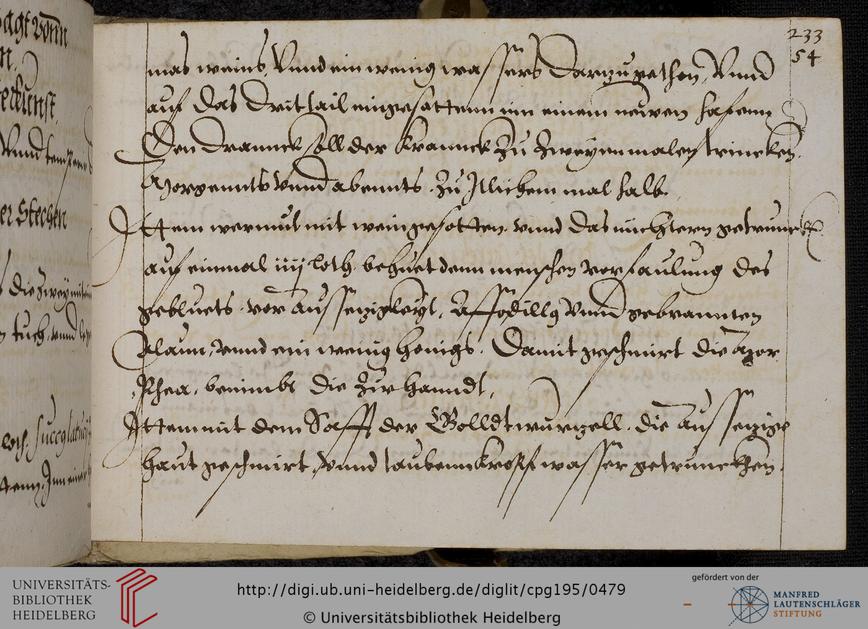 233
54
mas weins, Vnnd ein wenig wassers darzu gethon, Vnnd
auf das drittail eingesottenn inn einem newen hafenn
Den drannck soll der kranncke zu zweyenn malen trincken,
Morgennts vnnd abennts. zu Jtlichem mal halb.
Jttem wermut mit wein gesotten. vnnd das nüchtern getrunckh
auf einmal iiij loth. behuet denn menschen vor faulung des
gebluets. vor Aussetzigkeyt. Affodilly vnnd gebrannten
Alaun, vnnd ein wenig honigs. Damit geschmirt die Mor
Phea, benimbt die zur hanndt.
Jttem mit dem Safft der Golldtwurgell. die Aussetzige
haut geschmirt, vnnd taubennkropf wasser getrunckhen.
agt vonn
er Stechen
tuch. vnnd
UNIVERSITÄTS-
BIBLIOTHEK
HEIDELBERG
http://digi.ub.uni-heidelberg.de/diglit/cpg195/0479
© Universitätsbibliothek Heidelberg
gefördert von der
MANFRED
LAUTENSCHLÄGER
STIFTUNG